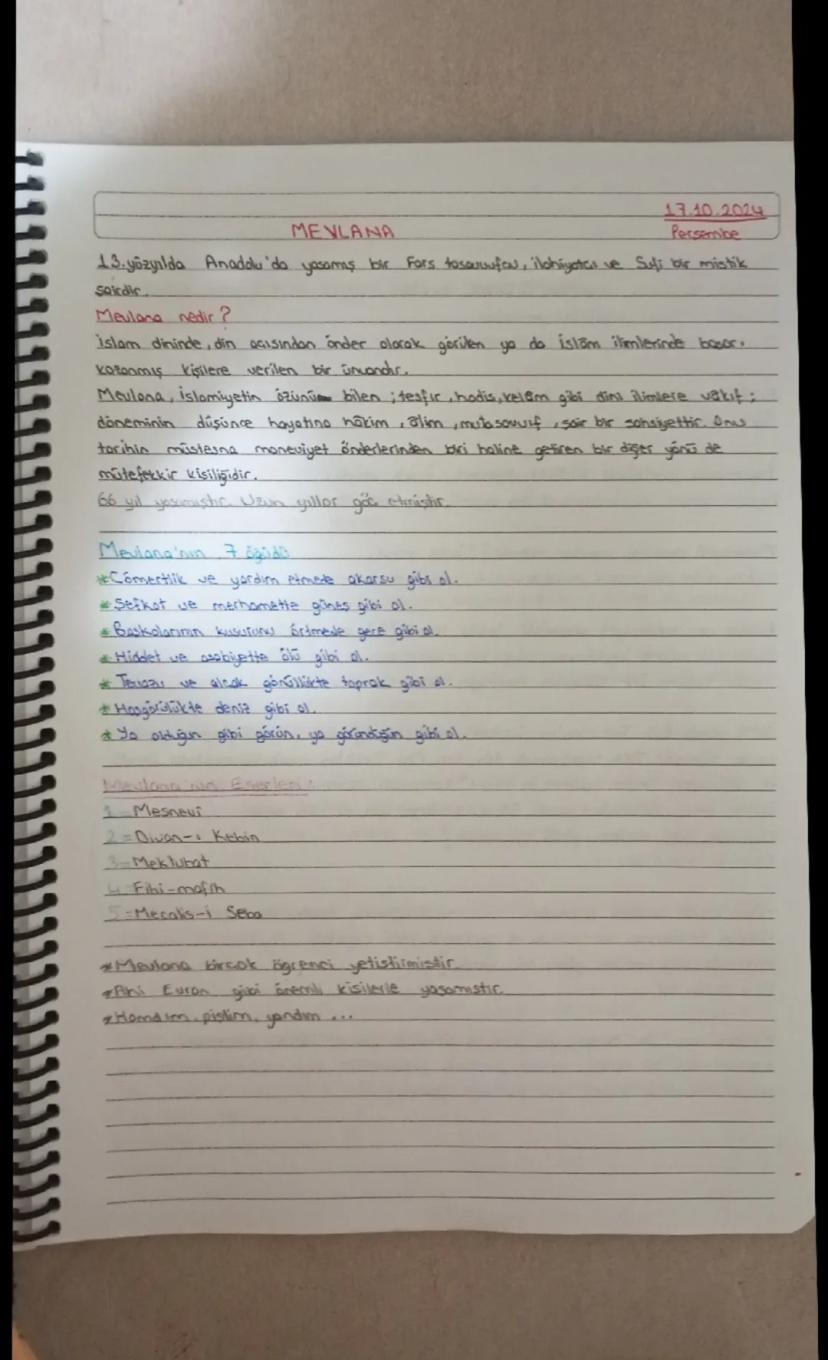 17.10.2024
MEVLANA Perşembe
13.yüzyılda Anadolu'da yaşamış bir Fars tasavvufcu, ilahiyatcı ve Sufi bir mistik
şairdir.
Mevlana nedir?
İslam dininde, din açısından önder olarak görülen ya da İslâm ilimlerinde başarı
kazanmış kişilere verilen bir ünvandır.
Mevlana, İslamiyetin özünü bilen; tesfir, hadis, kelâm gibi dini ilimlere vâkıf;
döneminin düşünce hayatına hâkim, âlim, mutasavvıf, şair bir şahsiyettir. Onu
tarihin müstesna maneviyet önderlerinden biri haline getiren bir diğer yönü de
mütefekkir kişiliğidir.
66 yıl yaşamıştır. Uzun yıllar göç etmiştir.
Mevlana'nın 7 öğüdü
*Cömertlik ve yardım etmede akarsu gibi ol.
*Şefkat ve merhamette güneş gibi ol.
*Başkalarının kusurunu örtmede gece gibi ol.
*Hiddet ve asabiyette ölü gibi ol.
*Tevazu ve alçak gönüllükte toprak gibi ol.
*Hoşgörülükte deniz gibi ol.
*Ya olduğun gibi görün, ya göründüğün gibi ol.
Mevlana'nın Eserleri:
1-Mesnevi
2-Divan-ı Kebin
3-Mektubat
4-Fihi-mafih
5-Mecalis-i Seba
*Mevlana birçok öğrenci yetiştirmiştir.
*Ahi Evran gibi önemli kişilerle yaşamıştır.
*Hamdım, piştim, yandım ...